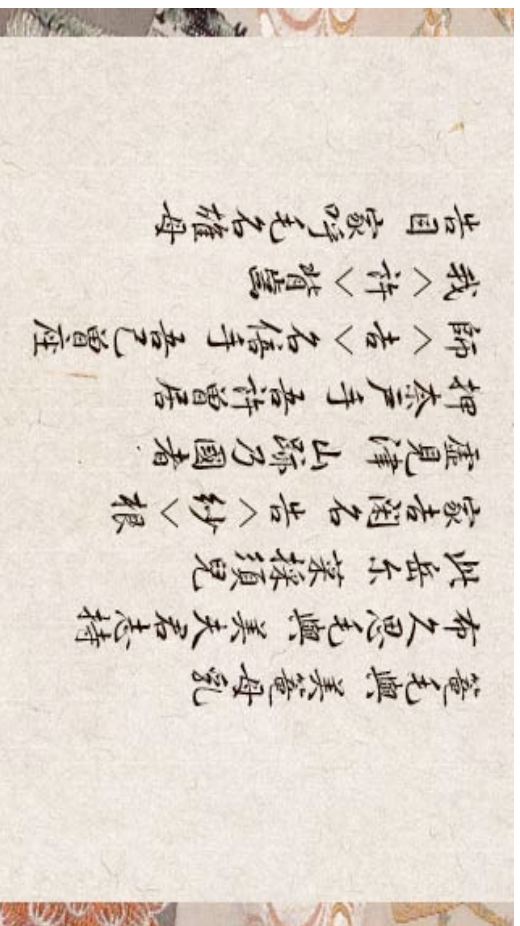 篭毛與 美篭母乳
布久思毛與 美夫君志持
此岳尓 菜採須兒
家吉閑名 告<紗>根
虚見津 山跡乃國者
押奈戸手 吾許曽居
師<吉>名倍手 吾己曽座
我<許>背齒
告目 家呼毛名雄母